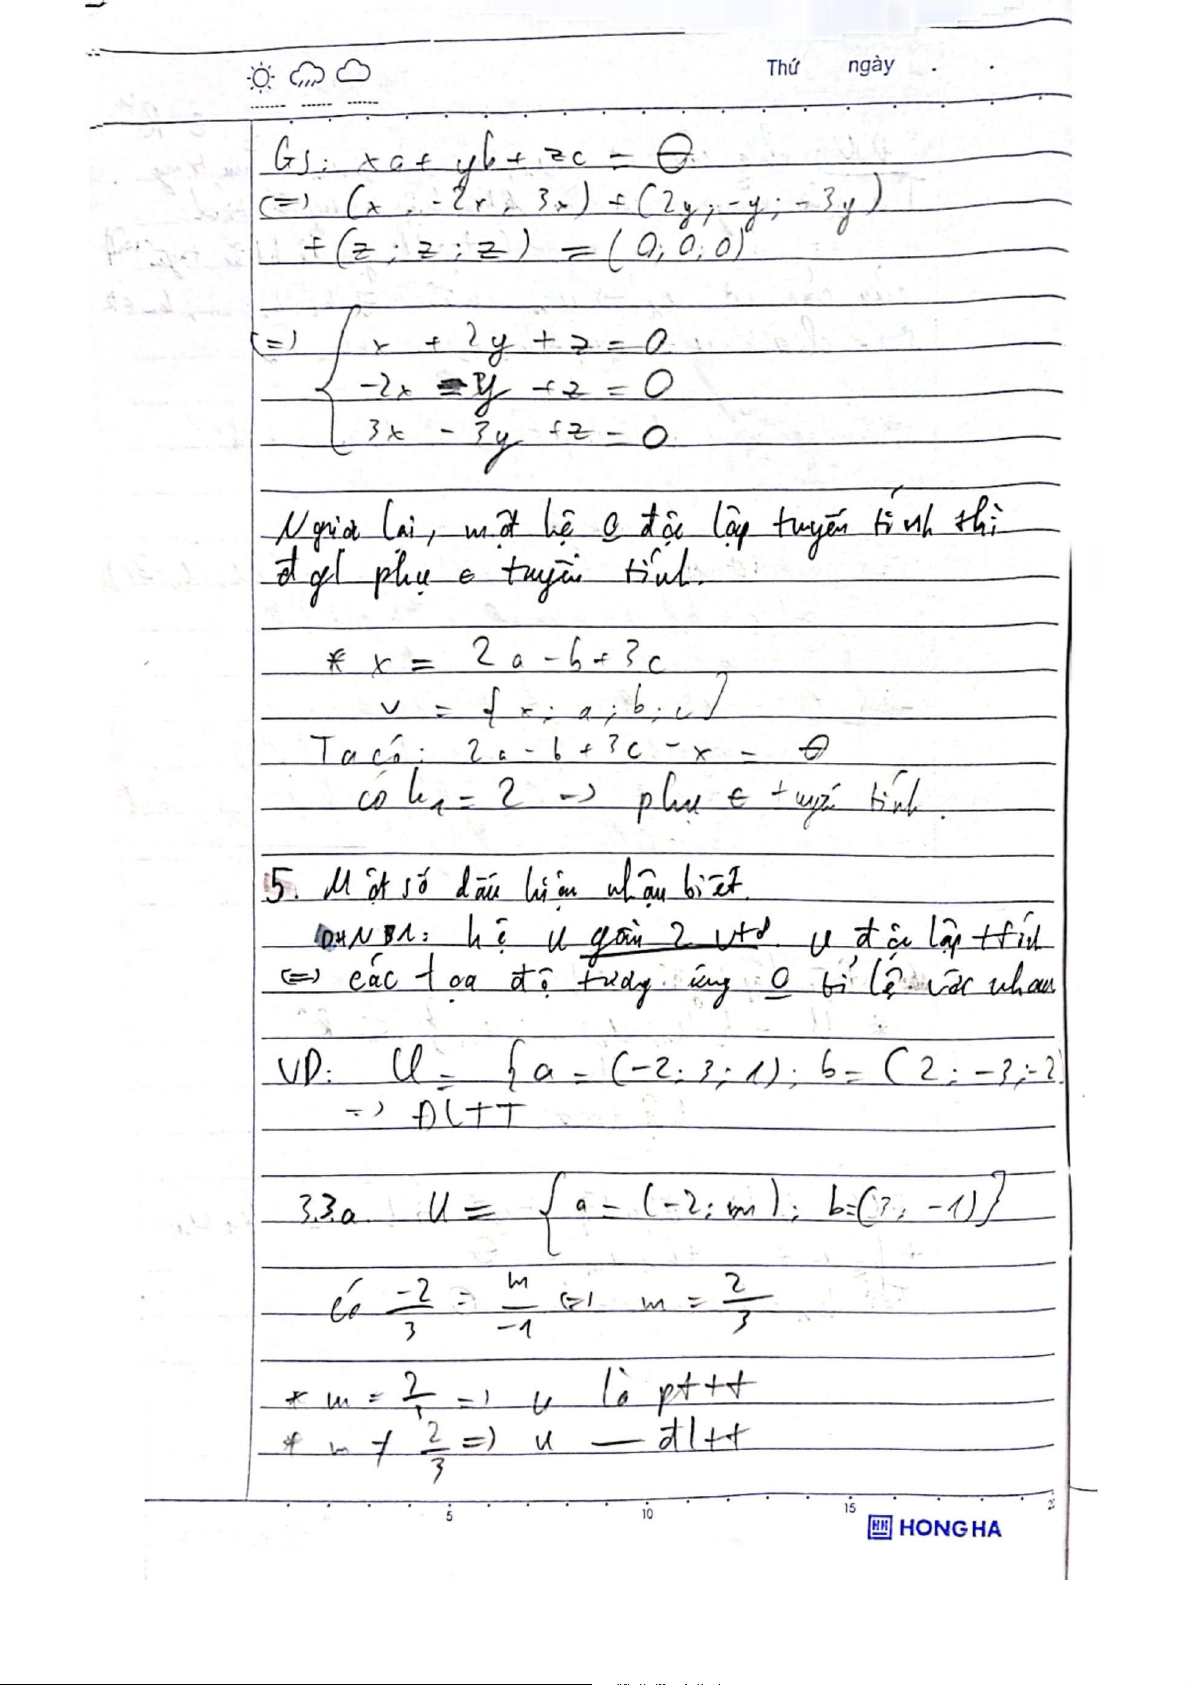 Thứ ngày . .
GS: xa + yb + zc = θ
(=) (x ; -2x ; 3x) + (2y ; -y ; -3y)
+ (z ; z ; z) = (0; 0; 0)
(=) { x + 2y + z = 0
-2x - y + z = 0
3x - 3y + z = 0
Ngược lại, một hệ 0 độc lập tuyến tính thì
đgl phụ ∈ tuyến tính.
* x = 2a - b + 3c
v = { x ; a ; b ; c }
Ta có: 2a - b + 3c - x = θ
có k1 = 2 => phụ ∈ tuyến tính.
5. Một số dấu hiệu nhận biết.
DHNB1: hệ U gồm 2 vtơ. U độc lập ttính
(=) các toạ độ tương ứng 0 tỉ lệ với nhau
VD: U = { a = (-2; 3; 1); b = (2; -3; -2)
=) ĐLTT
3.3.a. U = { a = (-2; m); b = (3; -1) }
Có -2/3 = m/-1 (=) m = 2/3
* m = 2/3 => U là pttt
* m ≠ 2/3 => U — đltt
5 10 15 20
HONG HA